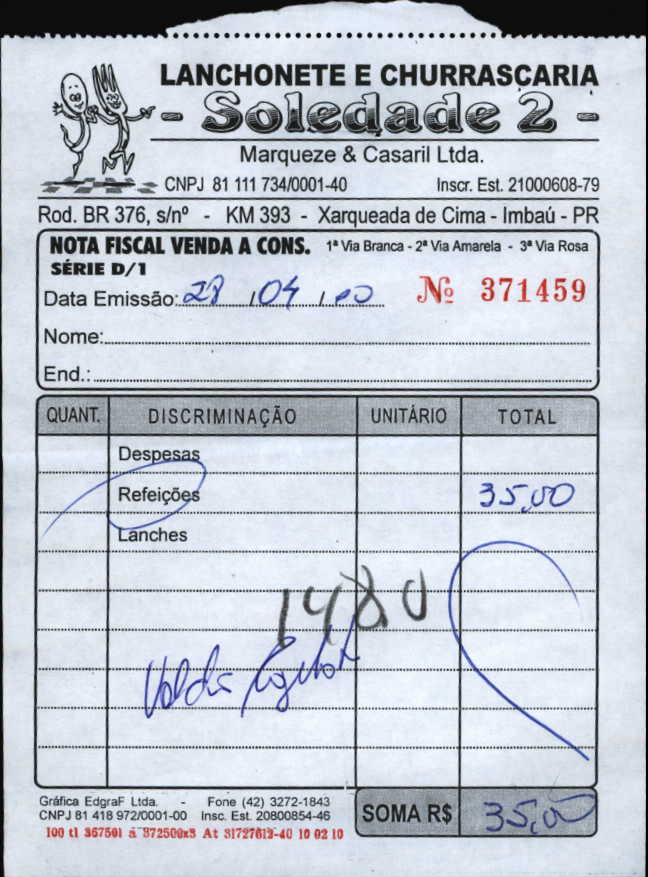 LANCHONETE E CHURRASCARIA
- Soledade 2 -
Marqueze & Casaril Ltda.
CNPJ 81 111 734/0001-40 Inscr. Est. 21000608-79
Rod. BR 376, s/nº - KM 393 - Xarqueada de Cima - Imbaú - PR
NOTA FISCAL VENDA A CONS. 1ª Via Branca - 2ª Via Amarela - 3ª Via Rosa
SÉRIE D/1
Data Emissão: 28 / 04 / 10 Nº 371459
Nome:
End.:
QUANT. DISCRIMINAÇÃO UNITÁRIO TOTAL
Despesas
Refeições 35,00
Lanches
1480
Gráfica EdgraF Ltda. - Fone (42) 3272-1843
CNPJ 81 418 972/0001-00 Insc. Est. 20800854-46
100 tl 367501 à 372500x3 10 02 10
SOMA R$ 35,00